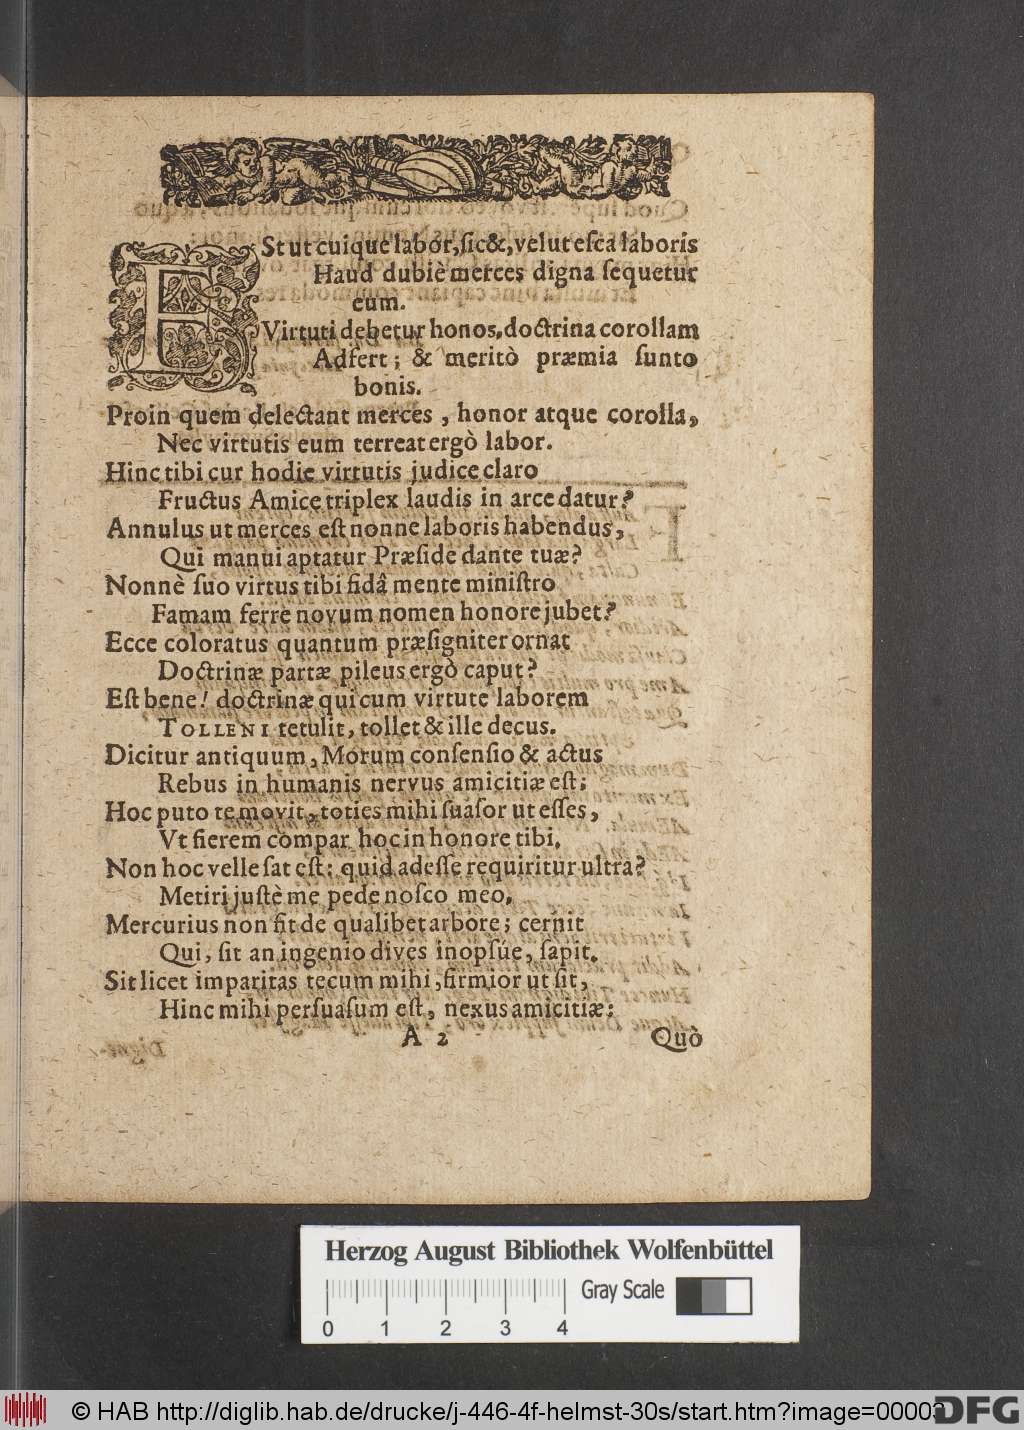 ESt ut cuique labor, sic &, velut esca laboris
Haud dubiè merces digna sequetur
eum.
Virtuti debetur honos, doctrina corollam
Adfert; & meritò præmia sunto
bonis.
Proin quem delectant merces, honor atque corolla,
Nec virtutis eum terreat ergò labor.
Hinc tibi cur hodie virtutis judice claro
Fructus Amice triplex laudis in arce datur?
Annulus ut merces est nonne laboris habendus,
Qui manui aptatur Præside dante tuæ?
Nonnè suo virtus tibi fidâ mente ministro
Famam ferre novum nomen honore jubet?
Ecce coloratus quantum præsigniter ornat
Doctrinæ partæ pileus ergò caput?
Est bene! doctrinæ qui cum virtute laborem
TOLLENI tetulit, tollet & ille decus.
Dicitur antiquum, Morum consensio & actus
Rebus in humanis nervus amicitiæ est;
Hoc puto te movit, toties mihi suasor ut esses,
Vt fierem compar hoc in honore tibi.
Non hoc velle sat est: quid adesse requiritur ultra?
Metiri justè me pede nosco meo.
Mercurius non fit de qualibet arbore; cernit
Qui, sit an ingenio dives inopsúe, sapit.
Sit licet imparitas tecum mihi, firmior ut sit,
Hinc mihi persuasum est, nexus amicitiæ:
A 2 Quò
Herzog August Bibliothek Wolfenbüttel
Gray Scale
0 1 2 3 4
© HAB http://diglib.hab.de/drucke/j-446-4f-helmst-30s/start.htm?image=00003
DFG